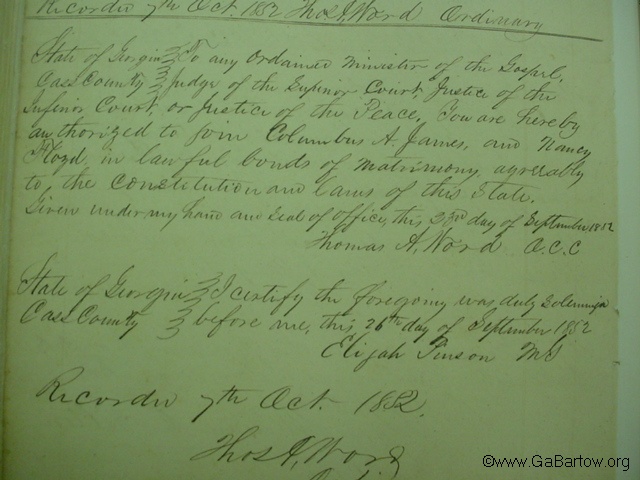 Recorded 7th Oct. 1852 Thos A, Word Ordinary
State of Georgia To any Ordained Minister of the Gospel,
Cass County Judge of the Superior Court Justice of the
Inferior Court, or Justice of the Peace, You are hereby
authorized to join Columbus A. James, and Nancy
Floyd, in lawful bonds of Matrimony, agreeably
to, the Constitution and laws of this State.
Given under my hand and Seal of office, this 23rd day of September 1852
Thomas A, Word O.C.C
State of Georgia I certify the foregoing was duly Solemniza
Cass County before me, this 26th day of September 1852
Elijah Pinson MG
Recorded 7th Oct. 1852.
Thos A, Word
©www.GaBartow.org